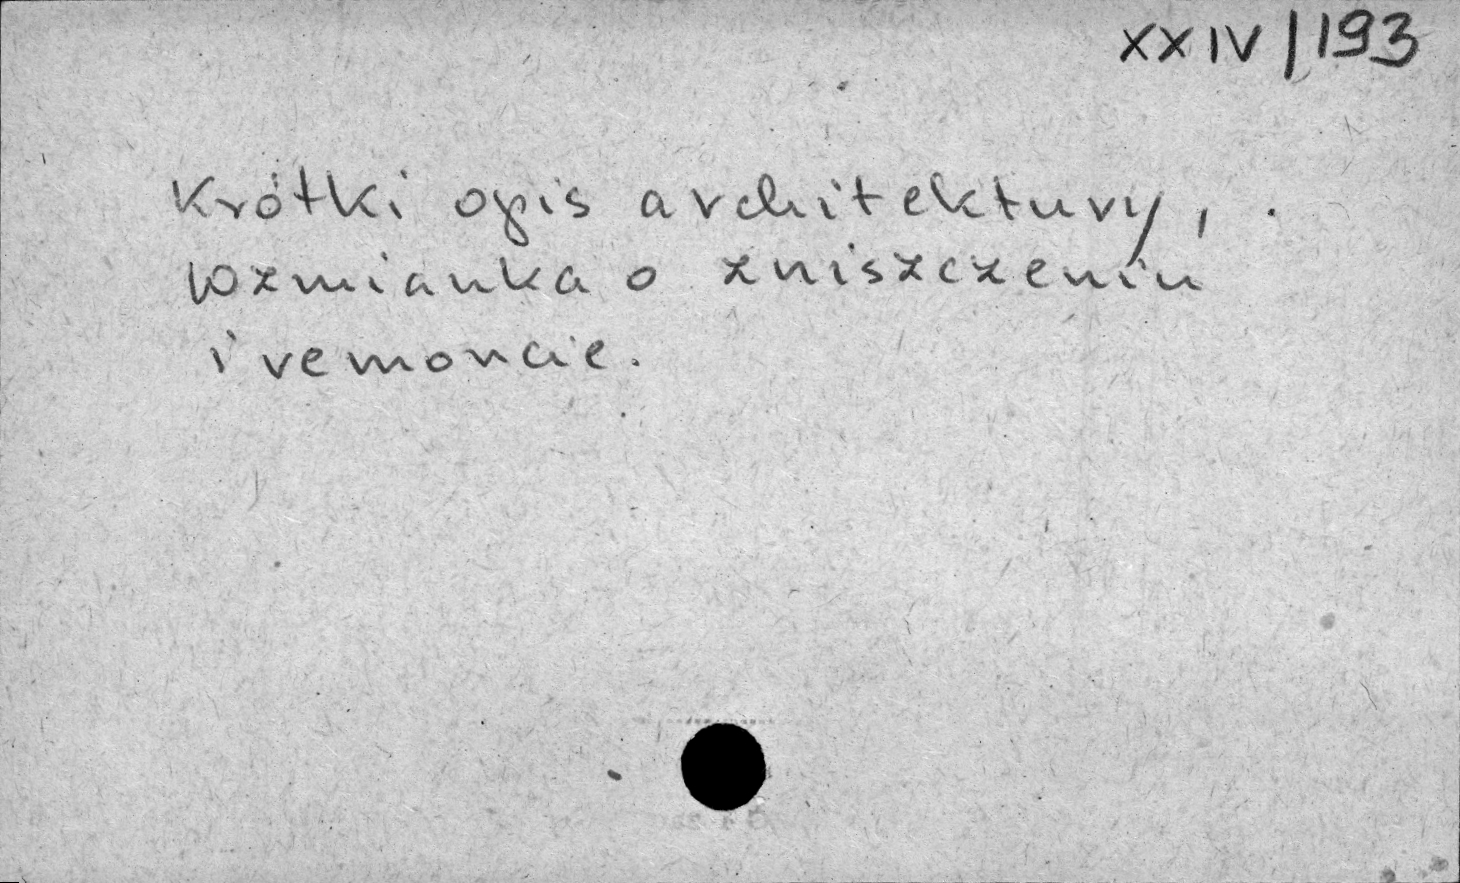 XXIV/193
Krótki opis architektury,
wzmianka o zniszczeniu
i remoncie.